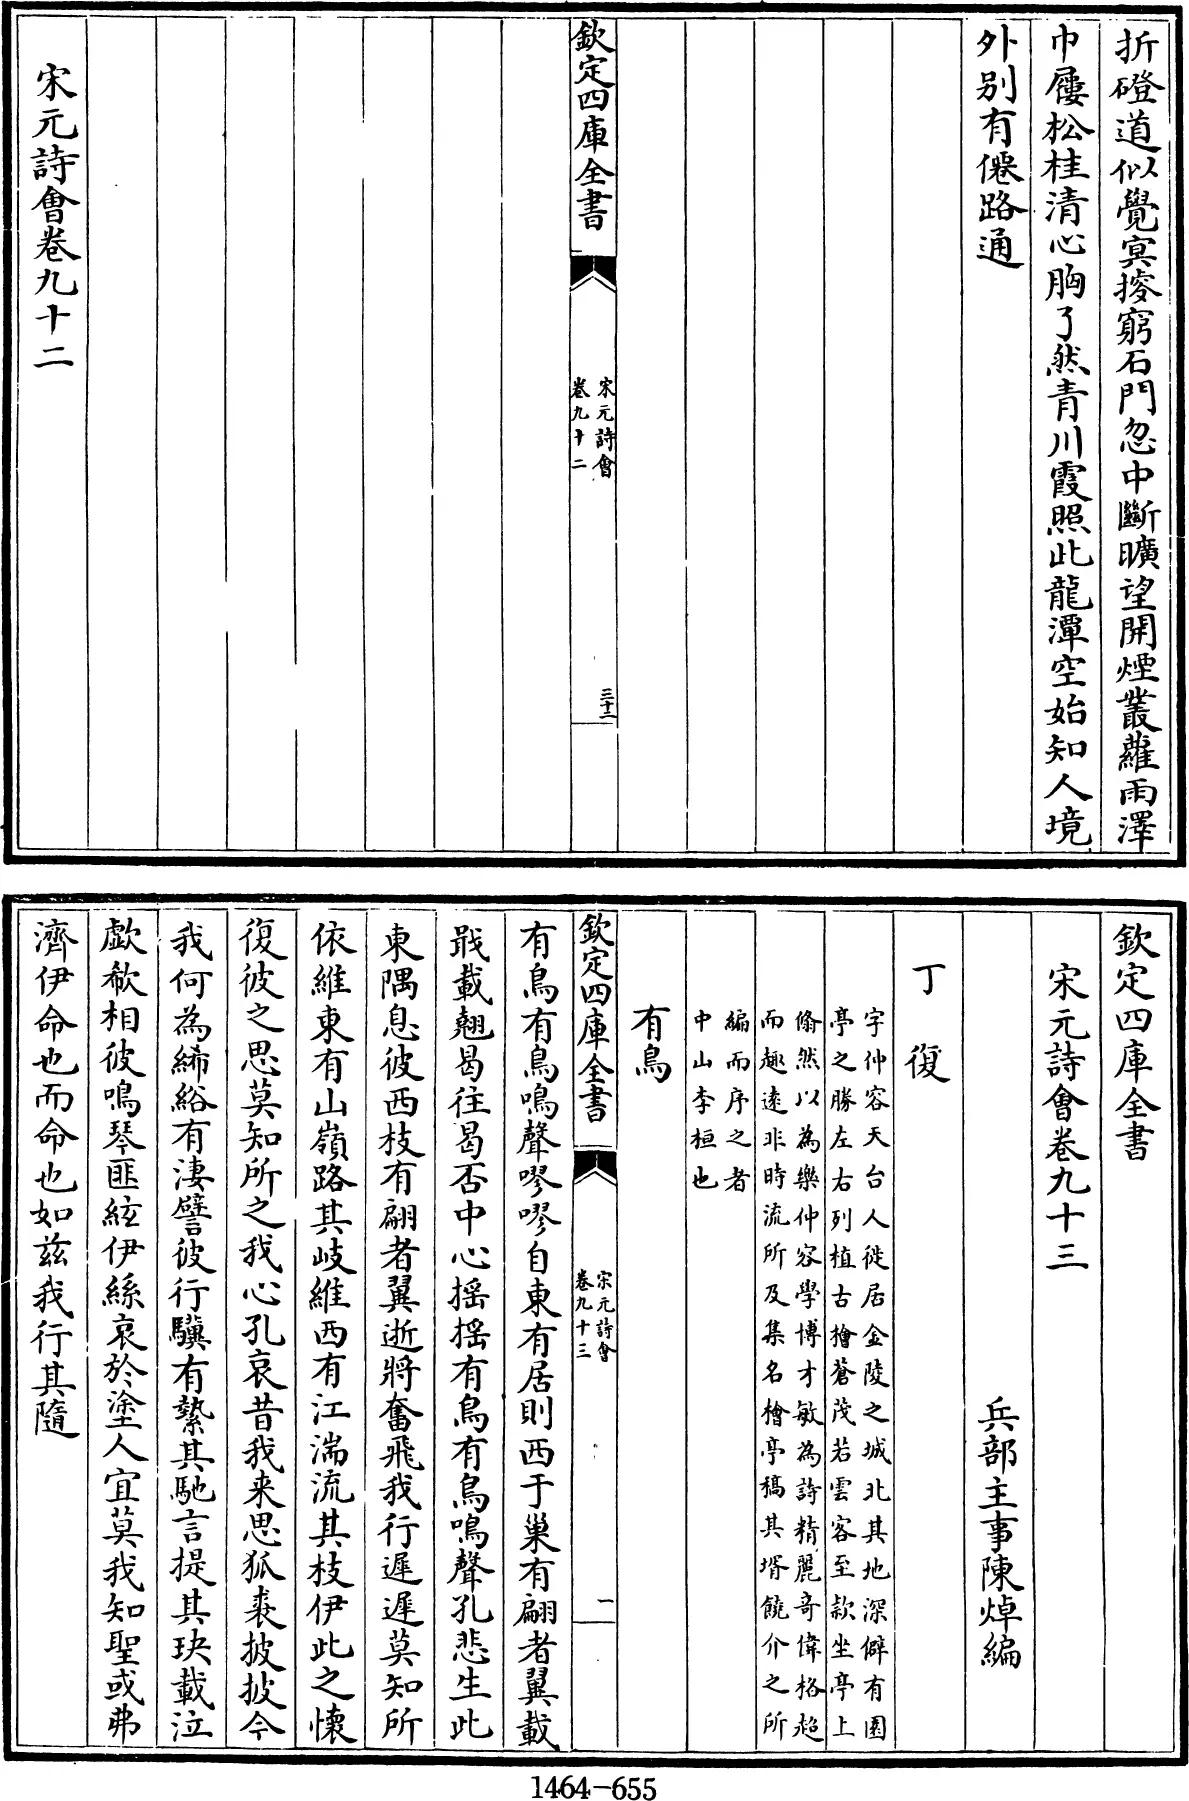 折磴道似覺冥搜窮石門忽中斷曠望開煙叢蘿雨澤
巾屨松桂清心胸了然青川霞照此龍潭空始知人境
外别有僊路通
欽定四庫全書
宋元詩會
卷九十二
三十二
宋元詩會卷九十二
欽定四庫全書
宋元詩會卷九十三
兵部主事陳焯編
丁復
字仲容天台人徙居金陵之城北其地深僻有園
亭之勝左右列植古檜蒼茂若雲容至款坐亭上
翛然以為樂仲容學博才敏為詩精麗奇偉格超
而趣逺非時流所及集名檜亭稿其壻饒介之所
編而序之者
中山李桓也
有鳥
欽定四庫全書
宋元詩會
卷九十三
一
有鳥有鳥鳴聲嘐嘐自東有居則西于巢有翩者翼載
戢載翹曷往曷否中心揺揺有鳥有鳥鳴聲孔悲生此
東隅息彼西枝有翩者翼逝將奮飛我行遲遲莫知所
依維東有山嶺路其岐維西有江湍流其枝伊此之懐
復彼之思莫知所之我心孔哀昔我来思狐裘披披今
我何為絺綌有淒譬彼行驥有縶其馳言提其玦載泣
歔欷相彼鳴琴匪絃伊絲哀於塗人宜莫我知聖或弗
濟伊命也而命也如兹我行其隨
1464-655